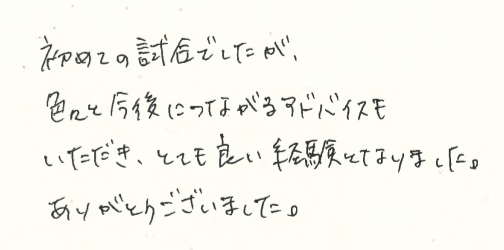 初めての試合でしたが、
色々と今後につながるアドバイスも
いただき、とても良い経験となりました。
ありがとうございました。